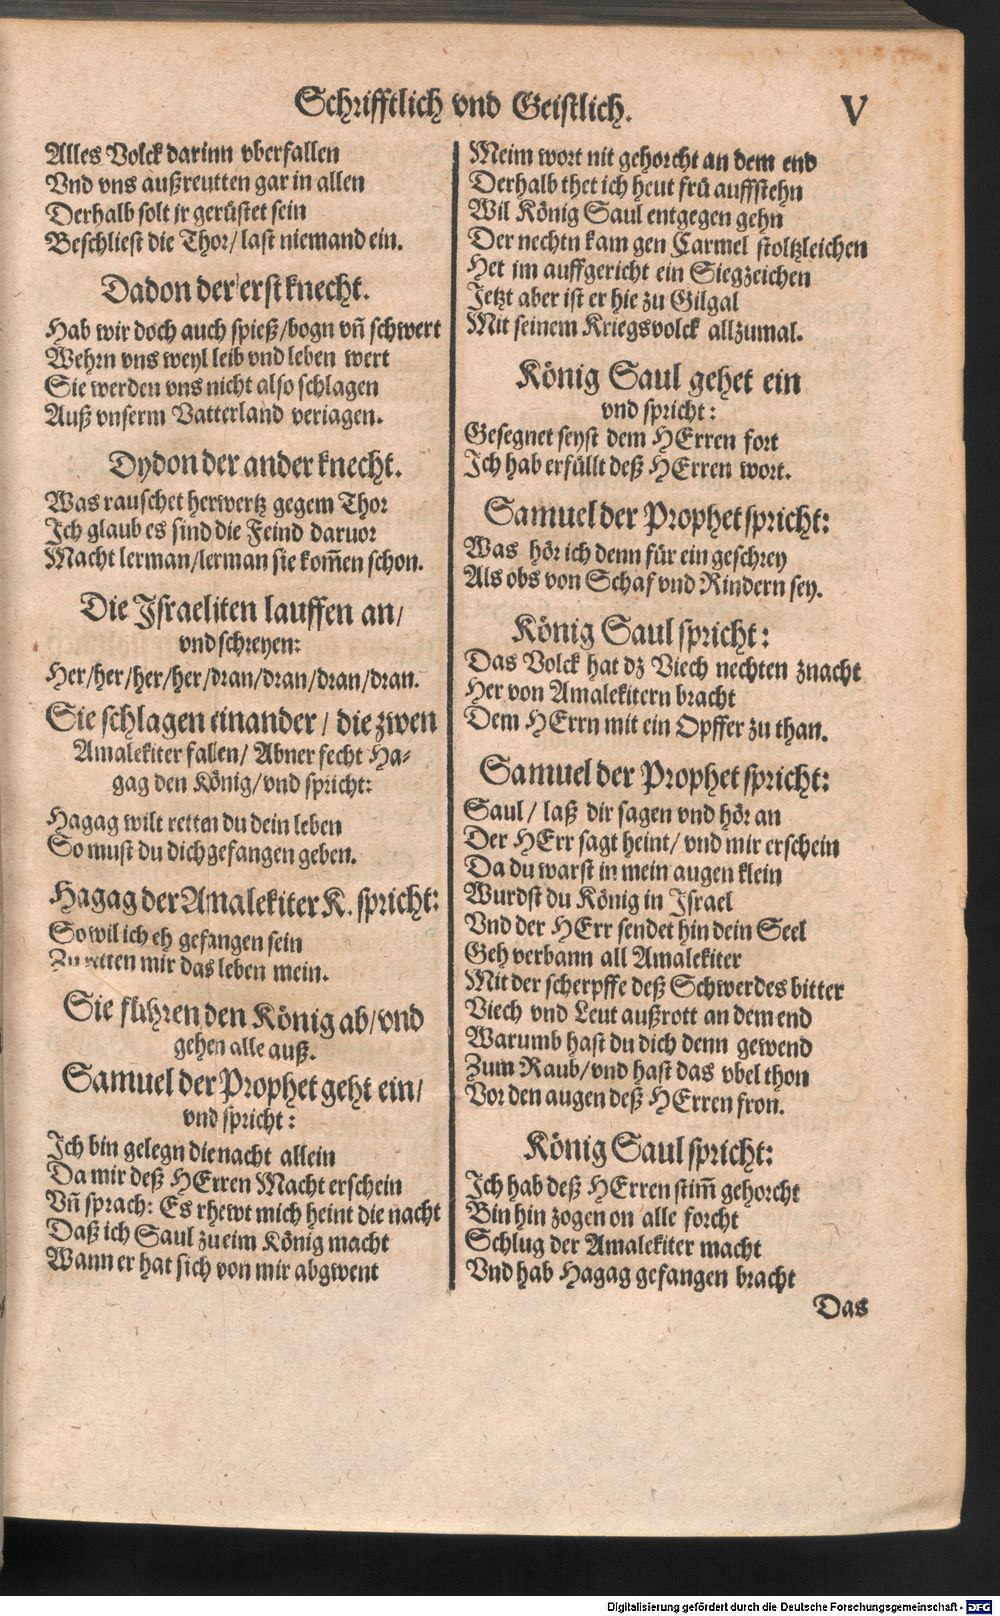 Schrifftlich vnd Geistlich.
V
Alles Volck darinn vberfallen
Vnd vns außreutten gar in allen
Derhalb solt jr gerüstet sein
Beschliest die Thor/ last niemand ein.
Dadon der erst knecht.
Hab wir doch auch spieß/bogn vñ schwert
Wehrn vns weyl leib vnd leben wert
Sie werden vns nicht also schlagen
Auß vnserm Vatterland veriagen.
Dydon der ander knecht.
Was rauschet herwertz gegem Thor
Ich glaub es sind die Feind daruor
Macht lerman/lerman sie kom̄en schon.
Die Israeliten lauffen an/
vnd schreyen:
Her/her/her/her/dran/dran/dran/dran.
Sie schlagen einander / die zwen
Amalekiter fallen/ Abner fecht Ha-
gag den König/vnd spricht:
Hagag wilt retten du dein leben
So must du dich gefangen geben.
Hagag der Amalekiter K. spricht:
So wil ich eh gefangen sein
Zu retten mir das leben mein.
Sie führen den König ab/vnd
gehen alle auß.
Samuel der Prophet geht ein/
vnd spricht:
Ich bin gelegn die nacht allein
Da mir deß HErren Macht erschein
Vñ sprach: Es rhewt mich heint die nacht
Daß ich Saul zu eim König macht
Wann er hat sich von mir abgwent
Meim wort nit gehorcht an dem end
Derhalb thet ich heut frü auffstehn
Wil König Saul entgegen gehn
Der nechtn kam gen Carmel stoltzleichen
Het im auffgericht ein Siegzeichen
Jetzt aber ist er hie zu Gilgal
Mit seinem Kriegsvolck allzumal.
König Saul gehet ein
vnd spricht:
Gesegnet seyst dem HErren fort
Ich hab erfüllt deß HErren wort.
Samuel der Prophet spricht:
Was hör ich denn für ein geschrey
Als obs von Schaf vnd Rindern sey.
König Saul spricht:
Das Volck hat dz Viech nechten znacht
Her von Amalekitern bracht
Dem HErrn mit ein Opffer zu than.
Samuel der Prophet spricht:
Saul/ laß dir sagen vnd hör an
Der HErr sagt heint/ vnd mir erschein
Da du warst in mein augen klein
Wurdst du König in Israel
Vnd der HErr sendet hin dein Seel
Geh verbann all Amalekiter
Mit der scherpffe deß Schwerdes bitter
Viech vnd Leut außrott an dem end
Warumb hast du dich denn gewend
Zum Raub/vnd hast das vbel thon
Vor den augen deß HErren fron.
König Saul spricht:
Ich hab deß HErren stim̄ gehorcht
Bin hin zogen on alle forcht
Schlug der Amalekiter macht
Vnd hab Hagag gefangen bracht
Das
Digitalisierung gefördert durch die Deutsche Forschungsgemeinschaft - DFG